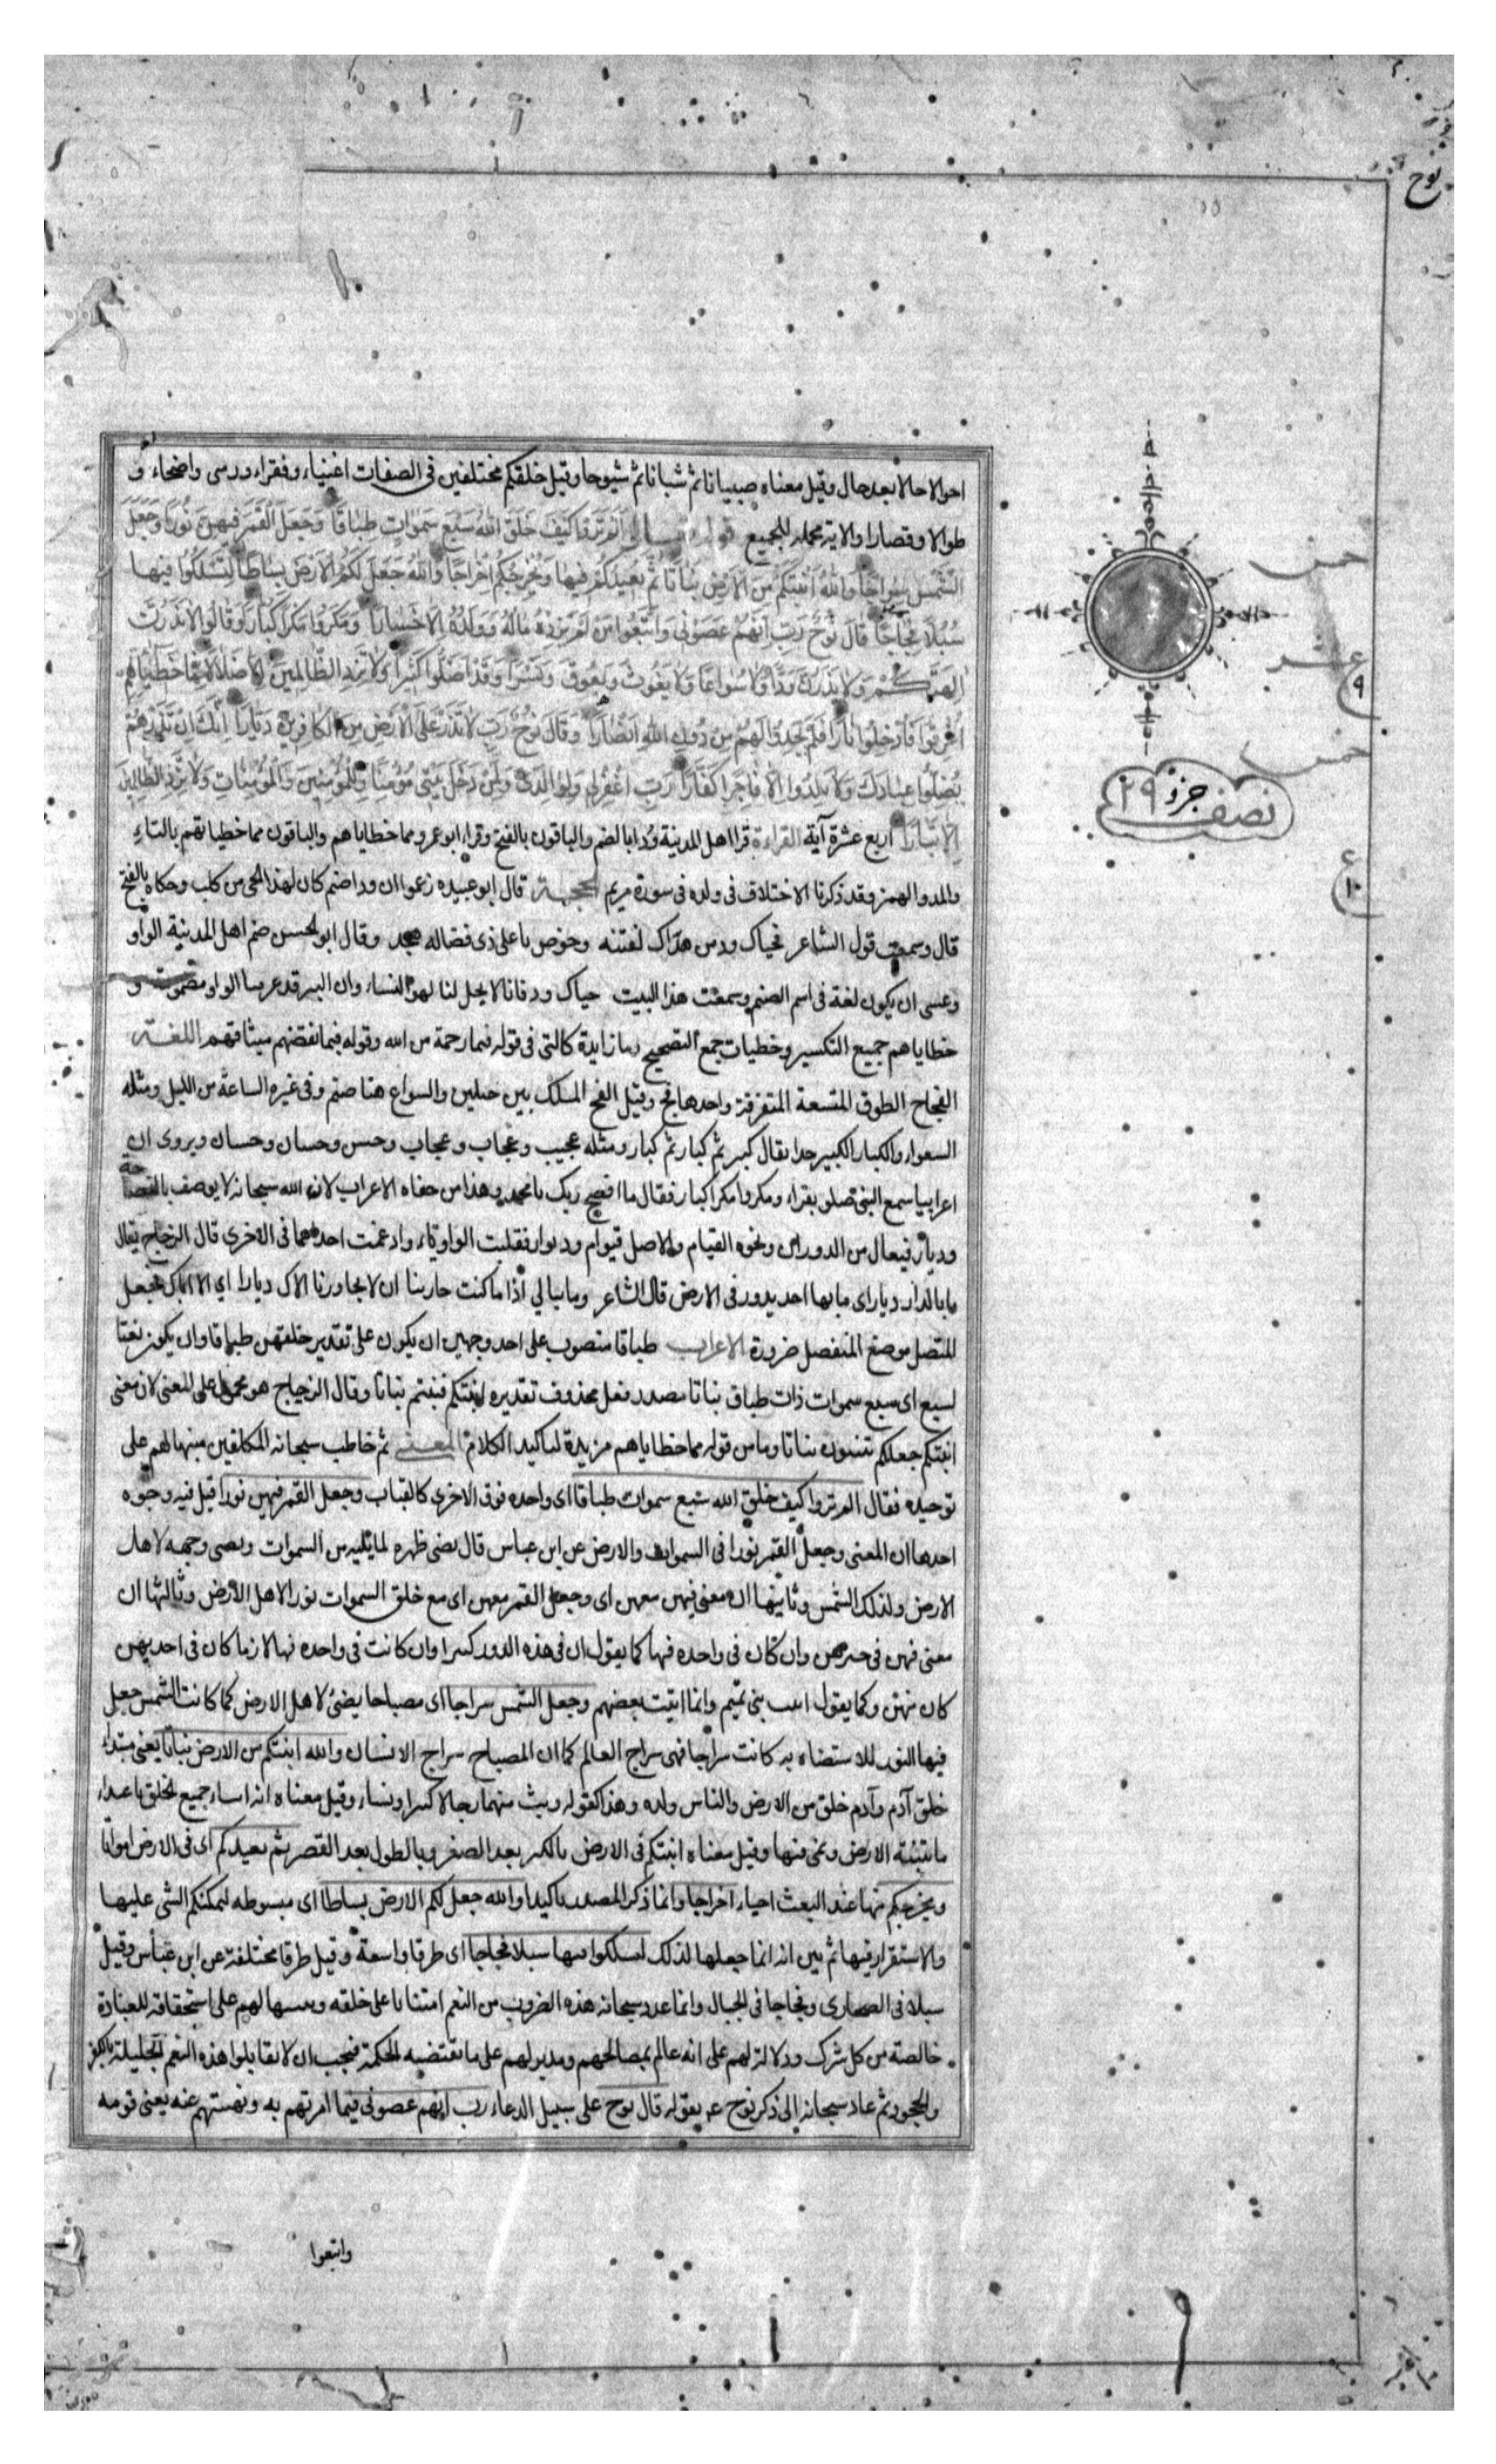 نوح
احوالا حالا بعد حال وقيل معناه صبيانا ثم شبانا ثم شيوخا وقيل خلقكم مختلفين فى الصفات اغنياء وفقراء وزمنى واصحاء و
طوالا وقصارا والاية محمله للجميع قوله تعالى ألم تروا كيف خلق الله سبع سموات طباقا وجعل القمر فيهن نورا وجعل
الشمس سراجا والله أنبتكم من الأرض نباتا ثم يعيدكم فيها ويخرجكم إخراجا والله جعل لكم الأرض بساطا لتسلكوا فيها
سبلا فجاجا قال نوح رب إنهم عصونى واتبعوا من لم يزده ماله وولده إلا خسارا ومكروا مكرا كبارا وقالوا لا تذرن
آلهتكم ولا تذرن ودا ولا سواعا ولا يغوث ويعوق ونسرا وقد أضلوا كثيرا ولا تزد الظالمين إلا ضلالا مما خطيئاتهم
أغرقوا فأدخلوا نارا فلم يجدوا لهم من دون الله أنصارا وقال نوح رب لا تذر على الأرض من الكافرين ديارا إنك إن تذرهم
يضلوا عبادك ولا يلدوا إلا فاجرا كفارا رب اغفر لى ولوالدى ولمن دخل بيتى مؤمنا وللمؤمنين والمؤمنات ولا تزد الظالمين
إلا تبارا اربع عشرة آية القراءة قرا اهل المدينة ودا بالضم والباقون بالفتح وقراء ابو عمرو مما خطاياهم والباقون مما خطياتهم بالتاء
والمد والهمز وقد ذكرنا الاختلاف فى ولده فى سورة مريم الحجة قال ابو عبيده زعموا ان ودا صنم كان لهذا الحى من كلب وحكاه بالفتح
قال وسمعت قول الشاعر فحياك ود من هداك لفتنه وخوص باعلى ذى فضاله هجد وقال ابو الحسن ضم اهل المدينة الواو
وعسى ان يكون لغة فى اسم الصنم وسمعت هذا البيت حياك ود فانا لا يحل لنا لهو النساء وان الدين قد عزما الواو مضمومة و
خطاياهم جمع التكسير وخطيات جمع التصحيح وما زايدة كالتى فى قوله فبما رحمة من الله وقوله فبما نقضهم ميثاقهم اللغة
الفجاج الطرق المتسعة المتفرقة واحدها فج وقيل الفج المسلك بين جبلين والسواع هنا صنم وفى غيره الساعة من الليل ومثله
السعواء والكبار الكبير جدا يقال كبير ثم كبار ثم كبار ومثله عجيب وعجاب وعجاب وحسن وحسان وحسان ويروى ان
اعرابيا سمع النبى صلو يقراء ومكروا مكرا كبارا فقال ما افصح ربك يا محمد وهذا من جفاء الاعراب لان الله سبحانه لا يوصف بالفصاحة
وديار فيعال من الدوران ونحوه القيام والاصل قيوام وديوار فقلبت الواو ياء وادغمت احدهما فى الاخرى قال الزجاج يقال
ما بالدار ديار اى ما بها احد يدور فى الارض قال الشاعر وما نبالى اذا ما كنت جارتنا ان لا يجاورنا الاك ديارا اي الا اياك فجعل
المتصل موضع المنفصل ضرورة الاعراب طباقا منصوب على احد وجهين ان يكون على تقدير خلقهن طباقا وان يكون نعتا
لسبع اى سبع سموات ذات طباق نباتا مصدر فعل محذوف تقديره انبتكم فنبتم نباتا وقال الزجاج هو محمول على المعنى لان معنى
انبتكم جعلكم تنبتون نباتا وما من قوله مما خطاياهم مزيدة لتاكيد الكلام المعنى ثم خاطب سبحانه المكلفين منبها لهم على
توحيده فقال الم تروا كيف خلق الله سبع سموات طباقا اى واحده فوق الاخرى كالقباب وجعل القمر فيهن نورا قيل فيه وجوه
احدها ان المعنى وجعل القمر نورا فى السموات والارض عن ابن عباس قال يضى ظهره لما يليه من السموات ويضى وجهه لاهل
الارض ولذلك الشمس وثانيها ان معنى فيهن معهن اى وجعل القمر معهن اى مع خلق السموات نورا لاهل الأرض وثالثها ان
معنى فيهن فى حيزهن وان كان فى واحده فيها كما يقول ان فى هذه الدور كبيرا وان كانت فى واحده منها لان ما كان فى احديهن
كان منهن وكما يقول اتيت بنى تميم وانما اتيت بعضهم وجعل الشمس سراجا اى مصباحا يضئ لاهل الارض كما كانت الشمس جعل
فيها النور للاستضاه به كانت سراجا فهى سراج العالم كما ان المصباح سراج الانسان والله انبتكم من الارض نباتا يعنى مبتداء
خلق آدم وآدم خلق من الارض والناس ولده وهذا كقوله وبث منهما رجالا كثيرا ونساء وقيل معناه انه انشاء جميع الخلق باغتذاء
ما تنبته الارض ونمى فيها وقيل معناه انبتكم فى الارض بالكبر بعد الصغر وبالطول بعد القصر ثم يعيدكم اى فى الارض امواتا
ويخرجكم منها عند البعث احياء اخراجا وانما ذكر المصدر تاكيدا والله جعل لكم الارض بساطا اى مبسوطه ليمكنكم المشى عليها
والاستقرار فيها ثم بين انه انما جعلها لذلك لتسلكوا منها سبلا فجاجا اى طرقا واسعة وقيل طرقا مختلفة عن ابن عباس وقيل
سبلا فى الصحارى وفجاجا فى الجبال وانما عدد سبحانه هذه الضروب من النعم امتنانا على خلقه وتنبيها لهم على استحقاقه للعبادة
خالصة من كل شرك ودلالة لهم على انه عالم بمصالحهم ومدبر لهم على ما تقتضيه الحكمة فيجب ان لا يقابلوا هذه النعم الجليلة بالكفر
والجحود ثم عاد سبحانه إلى ذكر نوح ع بقوله قال نوح على سبيل الدعاء رب إنهم عصونى فيما امرتهم به ونهيتهم عنه يعنى قومه
واتبعوا
خمس
عشر
٩
خمس
نصف جزء ٢٩
ع
١٠